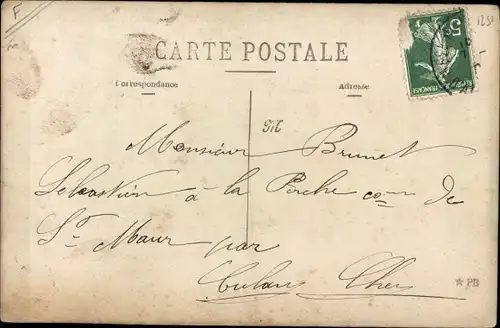 F
1251
CARTE POSTALE
Correspondance
Adresse
5c
M
Monsieur Brunet
Sébastien à la Perche com de
St Maur par
Culan Cher
★ PB